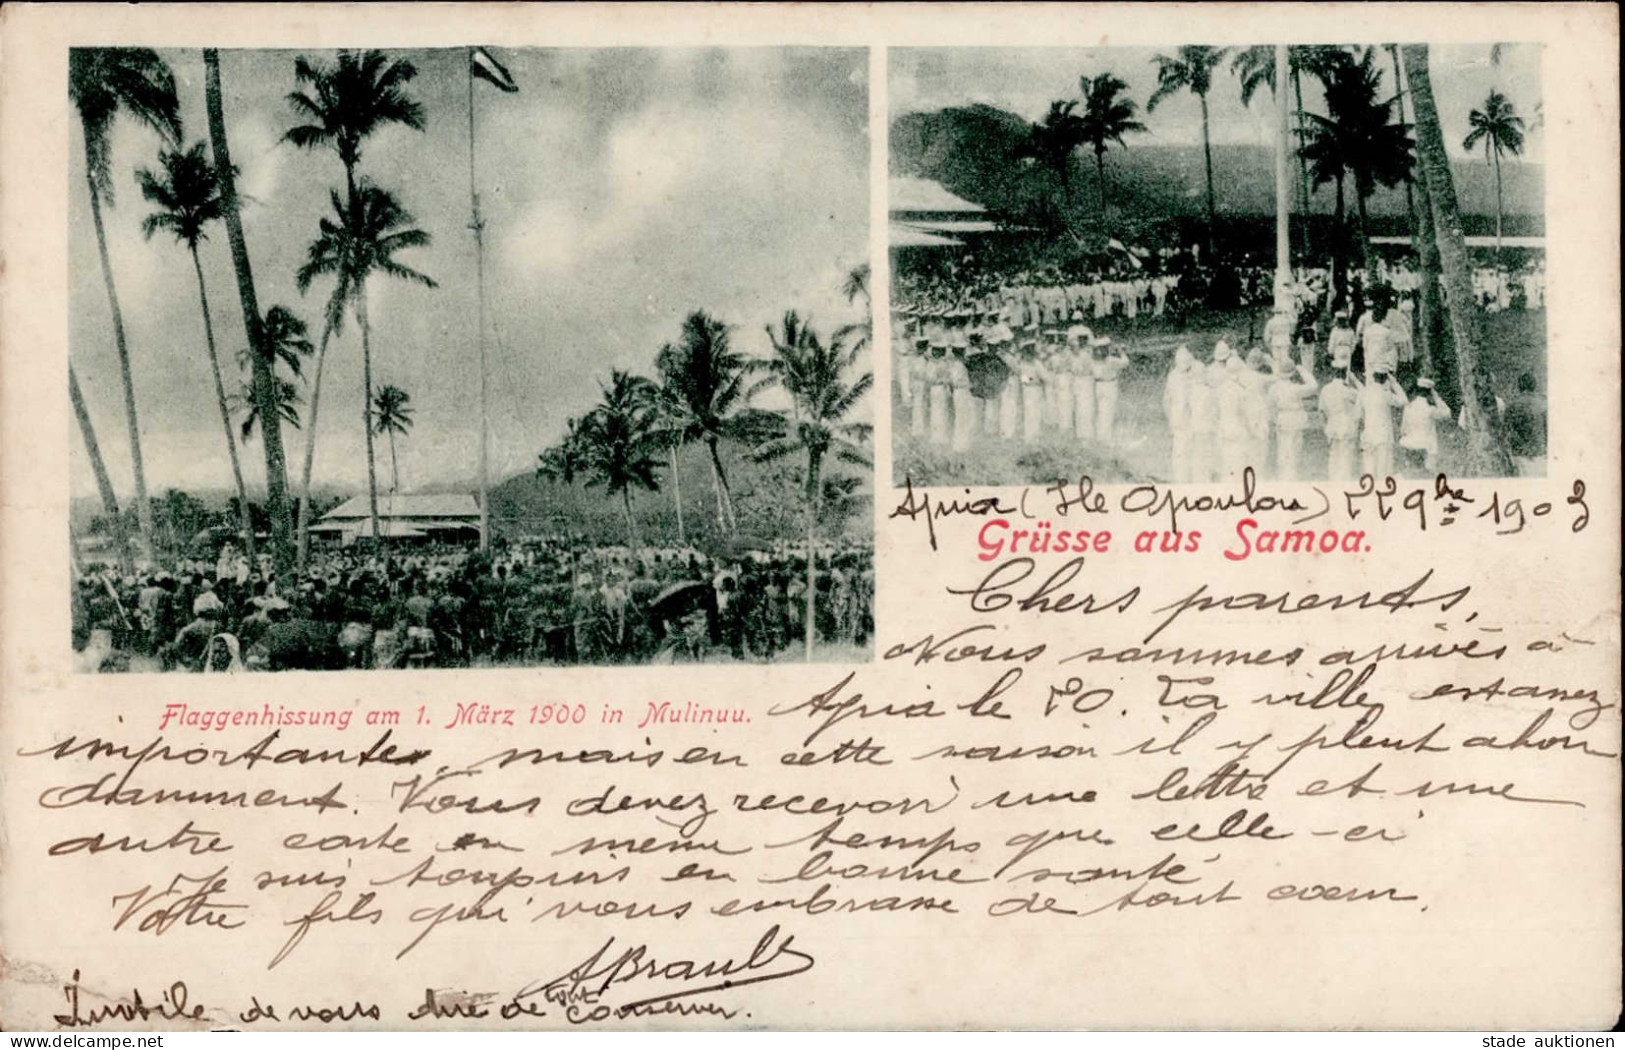 Apia (Ile Opoulou) 22 9bre 1903
Grüsse aus Samoa.
Chers parents,
Nous sommes arrivés à
Flaggenhissung am 1. März 1900 in Mulinuu.
Apia le 20. La ville est assez
importante, mais en cette saison il y pleut abon
damment. Vous devez recevoir une lettre et une
autre carte en même temps que celle-ci
Je suis toujours en bonne santé
Votre fils qui vous embrasse de tout coeur.
ABrault
Inutile de vous dire de tout conserver.
stade auktionen
delcampe.net